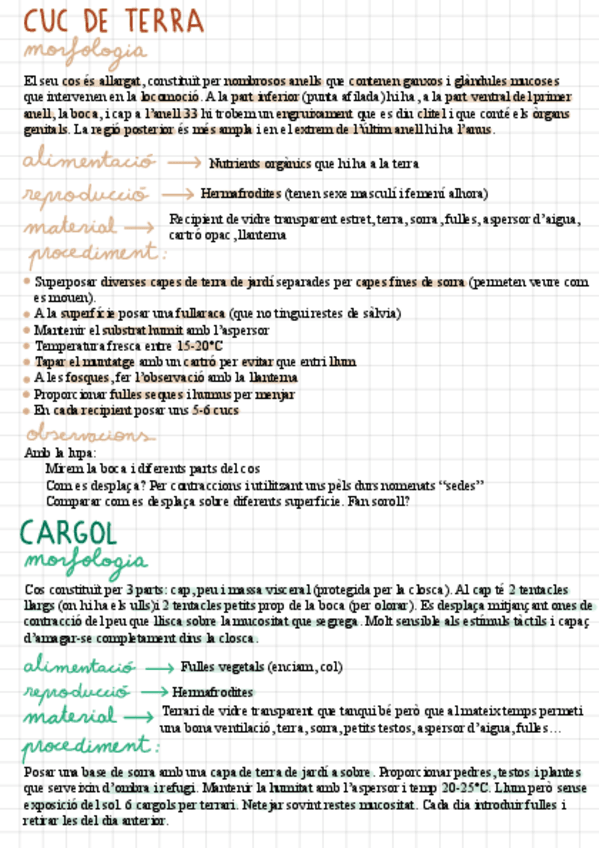 CUC DE TERRA
morfologia
El seu cos és allargat, constituït per nombrosos anells que contenen ganxos i glàndules mucoses
que intervenen en la locomoció. A la part inferior (punta afilada) hi ha, a la part ventral del primer
anell, la boca, i cap a l'anell 33 hi trobem un engruixament que es diu clitel i que conté els òrgans
genitals. La regió posterior és més ampla i en el extrem de l'últim anell hi ha l'anus.
alimentació → Nutrients orgànics que hi ha a la terra
reproducció → Hermafrodites (tenen sexe masculí i femení alhora)
material → Recipient de vidre transparent estret, terra, sorra, fulles, aspersor d'aigua,
cartró opac, llanterna
procediment:
• Superposar diverses capes de terra de jardí separades per capes fines de sorra (permeten veure com
es mouen).
• A la superfície posar una fullaraca (que no tingui restes de sàlvia)
• Mantenir el substrat humit amb l'aspersor
• Temperatura fresca entre 15-20°C
• Tapar el muntatge amb un cartró per evitar que entri llum
• A les fosques, fer l'observació amb la llanterna
• Proporcionar fulles seques i humus per menjar
• En cada recipient posar uns 5-6 cucs
observacions
Amb la lupa:
Mirem la boca i diferents parts del cos
Com es desplaça? Per contraccions i utilitzant uns pèls durs nomenats "sedes"
Comparar com es desplaça sobre diferents superfície. Fan soroll?
CARGOL
morfologia
Cos constituït per 3 parts: cap, peu i massa visceral (protegida per la closca). Al cap té 2 tentacles
llargs (on hi ha els ulls) i 2 tentacles petits prop de la boca (per olorar). Es desplaça mitjançant ones de
contracció del peu que llisca sobre la mucositat que segrega. Molt sensible als estímuls tàctils i capaç
d'amagar-se completament dins la closca.
alimentació → Fulles vegetals (enciam, col)
reproducció → Hermafrodites
material → Terrari de vidre transparent que tanqui bé però que al mateix temps permeti
una bona ventilació, terra, sorra, petits testos, aspersor d'aigua, fulles...
procediment:
Posar una base de sorra amb una capa de terra de jardí a sobre. Proporcionar pedres, testos i plantes
que serveixin d'ombra i refugi. Mantenir la humitat amb l'aspersor i temp 20-25°C. Llum però sense
exposició del sol. 6 cargols per terrari. Netejar sovint restes mucositat. Cada dia introduir fulles i
retirar les del dia anterior.